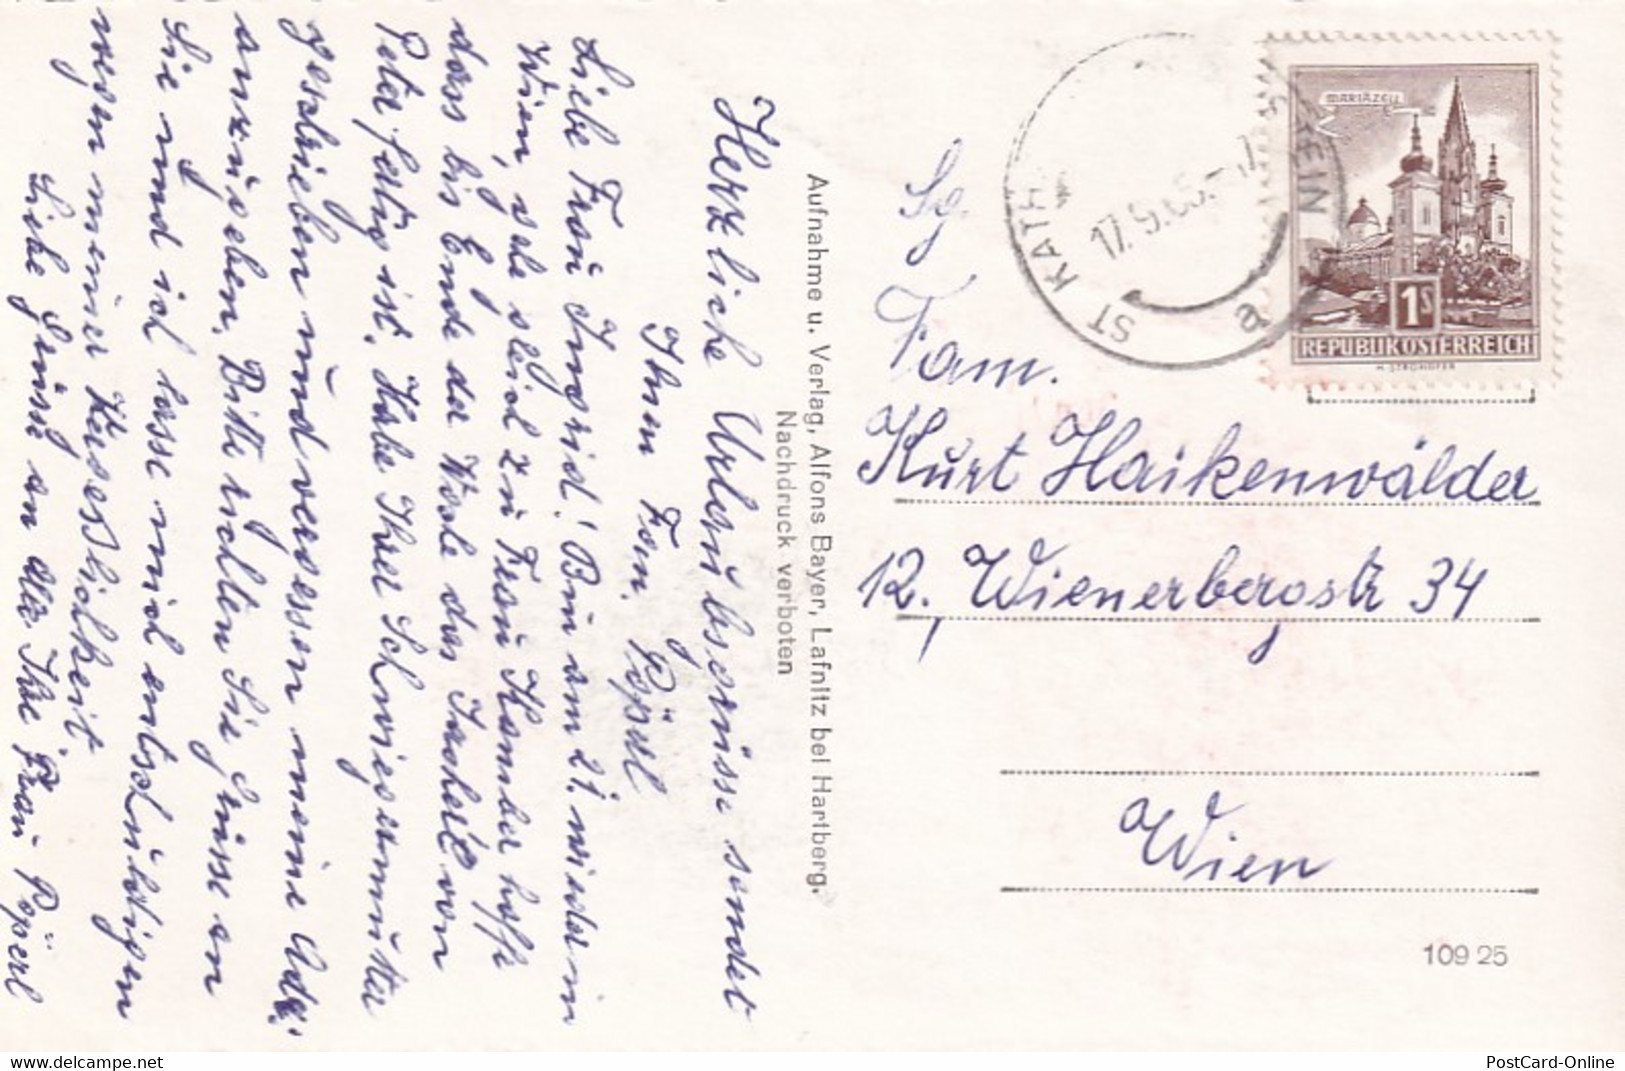 Herzliche Urlaubsgrüsse sendet
Ihnen Fam. Pöperl
Liebe Frau Ingrid! Bin am 21. wieder in
Wien, gehe gleich zu Frau Kamber hoffe
dass bis Ende der Woche das Jackerl von
Peter fertig ist. Habe Ihrer Schwiegermutter
geschrieben und vergessen meine Adr.
anzugeben. Bitte richten Sie Grüsse an
Sie und ich lasse mich entschuldigen
wegen meiner Vergesslichkeit
Liebe Grüsse an alle Ihre Frau Pöperl
Aufnahme u. Verlag, Alfons Bayer, Lafnitz bei Hartberg.
Nachdruck verboten
ST KATH
17.9.65.-
EIN
a
MARIAZELL
1S
REPUBLIK ÖSTERREICH
H. STROHOFER
Sg.
Fam.
Kurt Haikenwälder
12, Wienerbergstr 34
Wien
109 25
delcampe.net
PostCard-Online